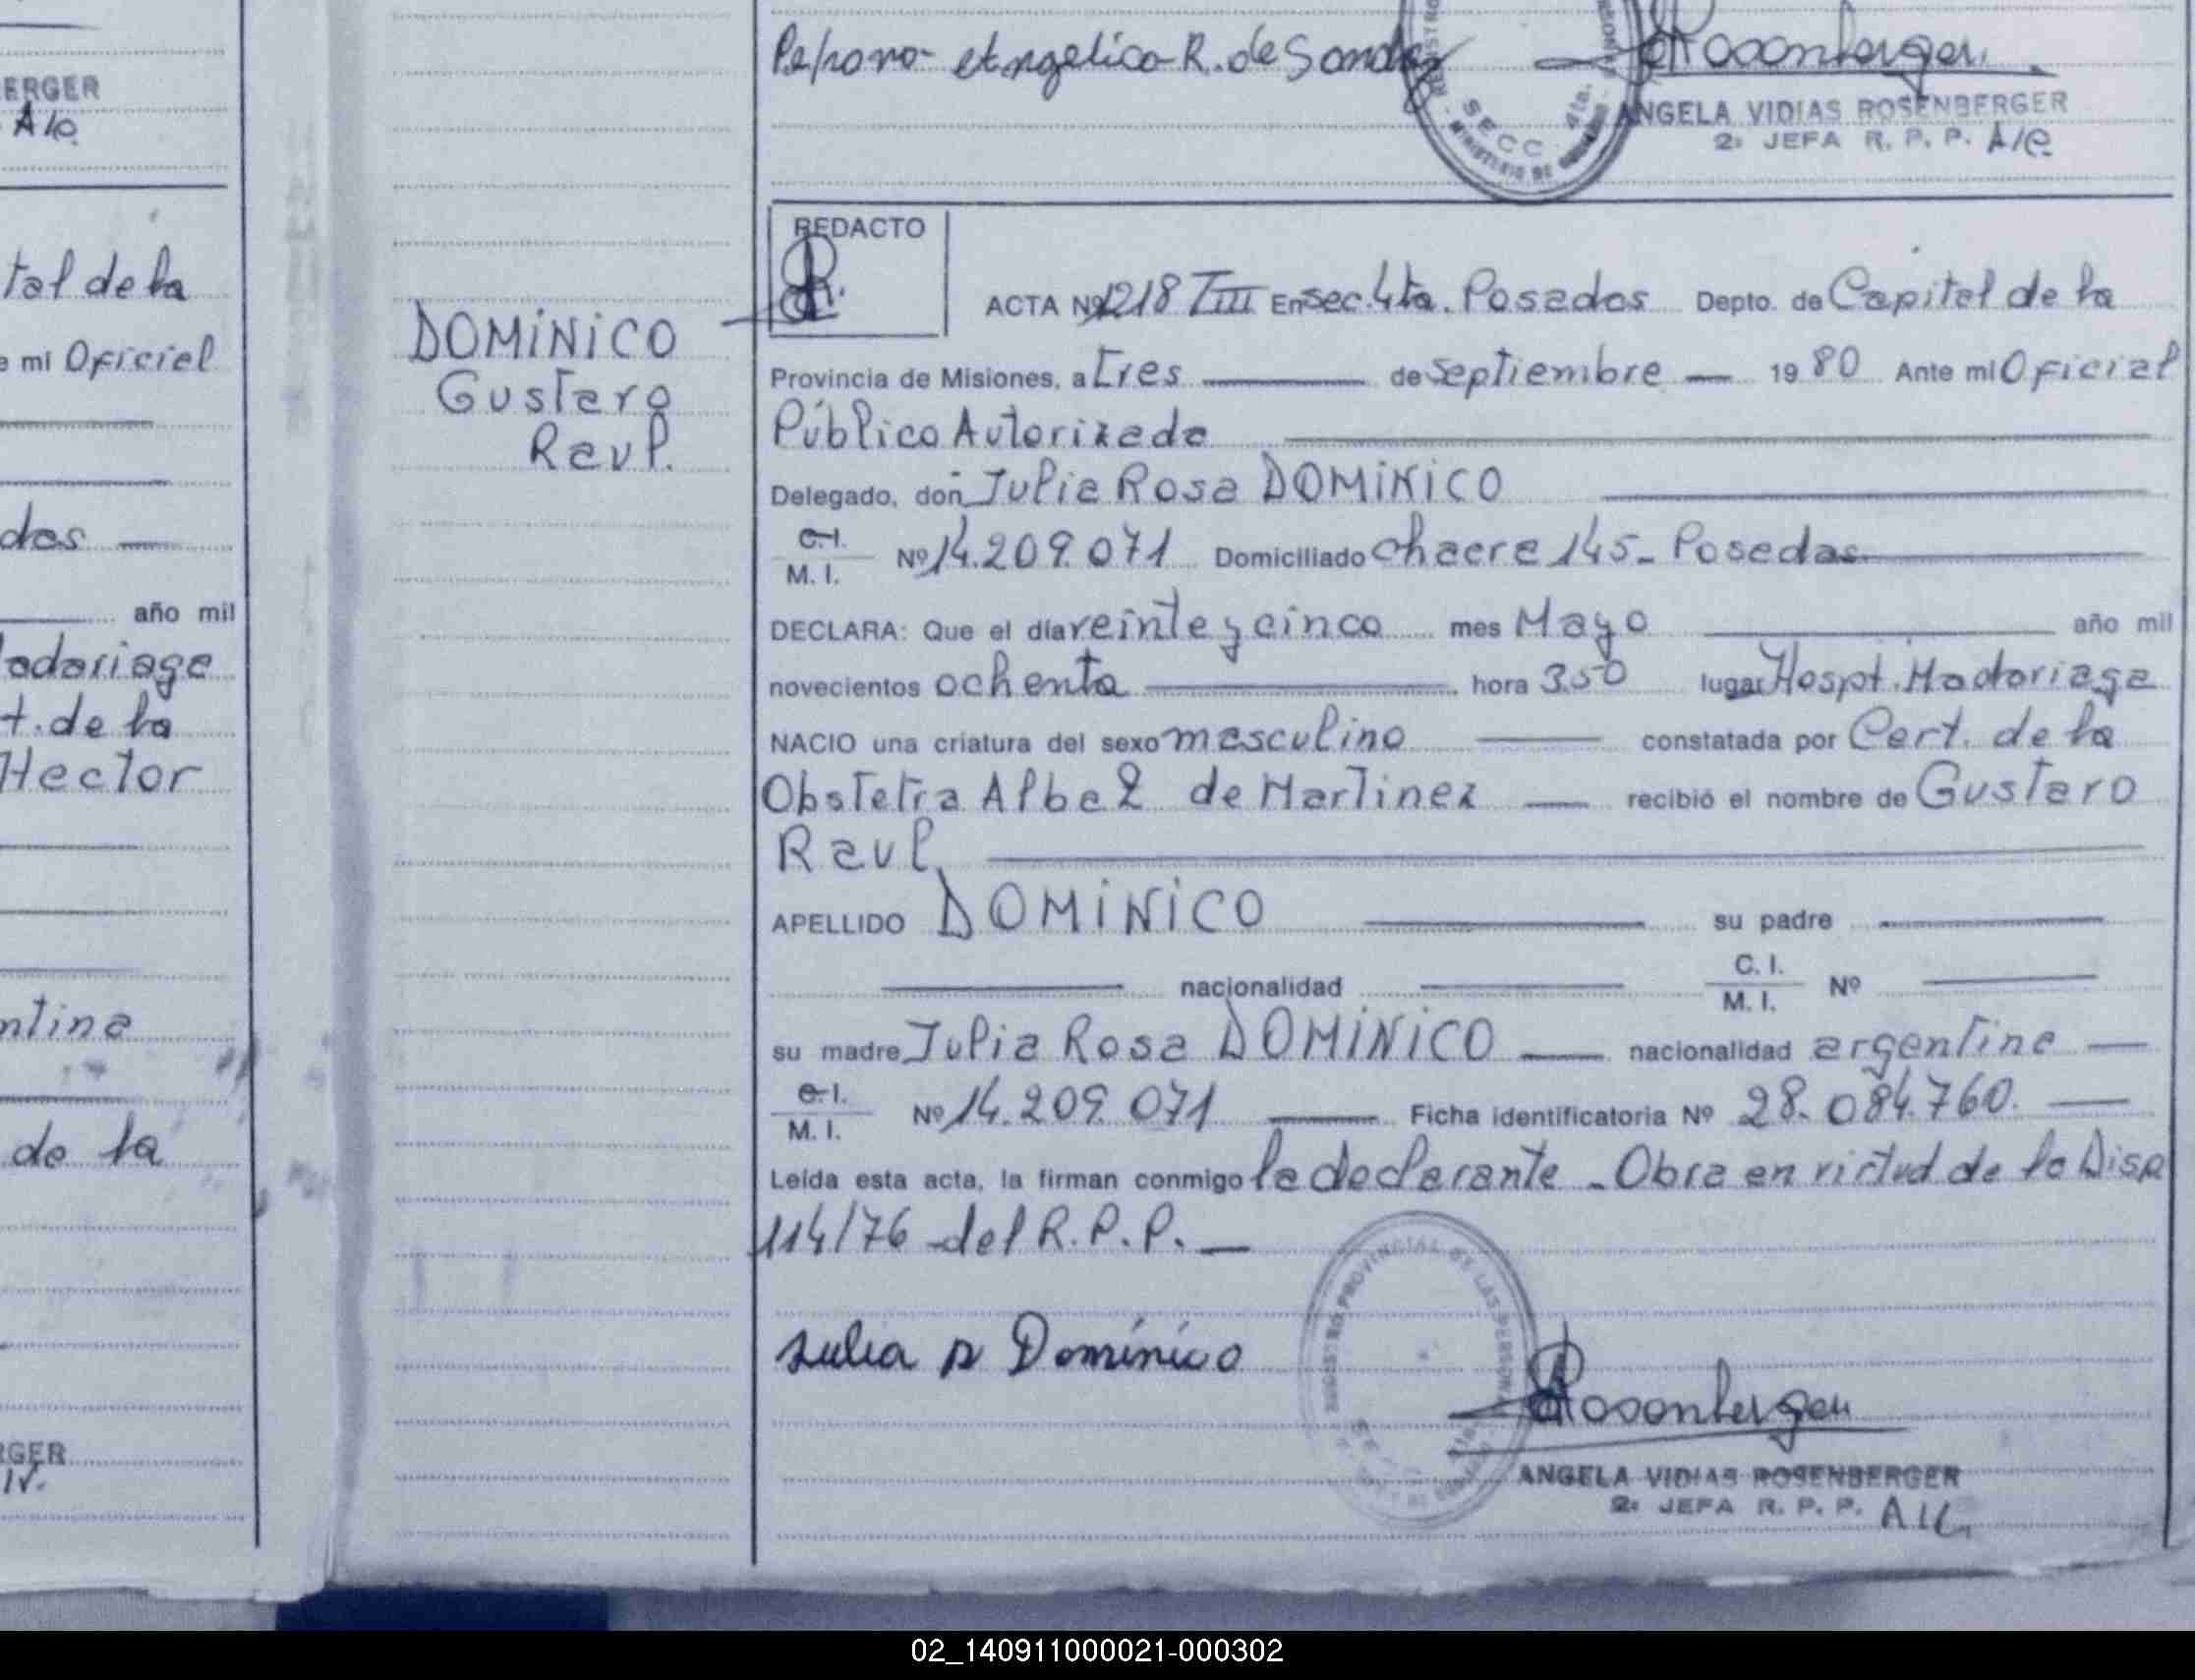 ERGER
A/c
tal de la
e mi Oficial
dos
año mil
adariaga
t. de la
Hector
ntina
de la
RGER
DOMINICO
Gustavo
Raul.
R. de Sander
Rosenberger
SECC 4ta.
ANGELA VIDIAS ROSENBERGER
2º JEFA R. P. P. A/C
REDACTO
ACTA Nº 1218 TIII En sec. 4ta. Posadas Depto. de Capital de la
Provincia de Misiones, a tres de septiembre 1980 Ante mi Oficial
Público Autorizado
Delegado, don Julia Rosa DOMINICO
C.I.
M. I. Nº 14.209.071 Domiciliado chacra 145 - Posadas
DECLARA: Que el día veinte y cinco mes Mayo año mil
novecientos ochenta hora 3.50 lugar Hospt. Madariaga
NACIO una criatura del sexo masculino constatada por Cert. de la
Obstetra Alba Z de Martinez recibió el nombre de Gustavo
Raul
APELLIDO DOMINICO su padre
nacionalidad C. I.
M. I. Nº
su madre Julia Rosa DOMINICO nacionalidad argentina
C.I.
M. I. Nº 14.209.071 Ficha identificatoria Nº 28.084.760.
Leída esta acta, la firman conmigo la declarante - Obra en virtud de la Disp
114/76 del R.P.P.
Julia R Dominico
PROVINCIAL DE LAS PERSONAS
Rosenberger
ANGELA VIDIAS ROSENBERGER
2º JEFA R. P. P. A/C
02_140911000021-000302